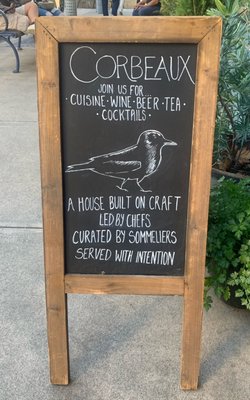 CORBEAUX
JOIN US FOR...
· CUISINE · WINE · BEER · TEA ·
COCKTAILS ·
A HOUSE BUILT ON CRAFT
LED BY CHEFS
CURATED BY SOMMELIERS
SERVED WITH INTENTION